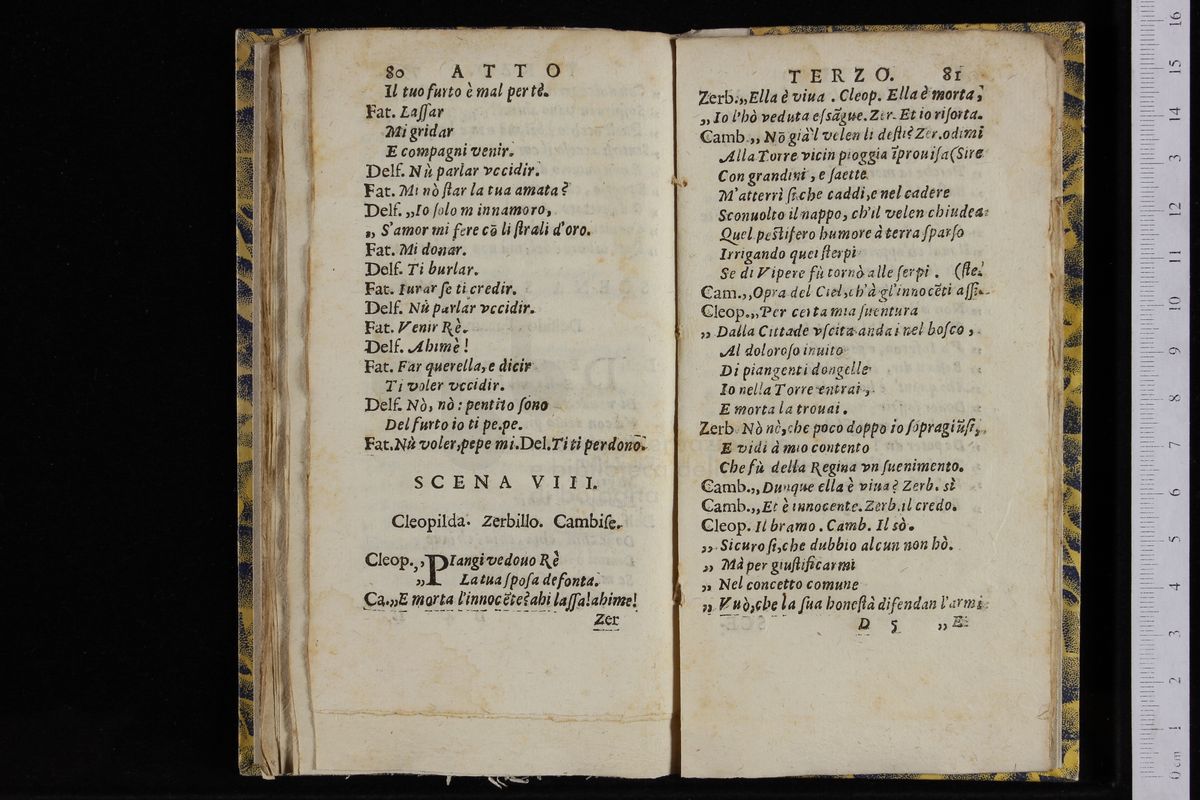 80 ATTO
Il tuo furto è mal per tè.
Fat. Laſſar
Mi gridar
E compagni venir.
Delf. Nù parlar vccidir.
Fat. Mi nò ſtar la tua amata?
Delf. „Io ſolo m innamoro,
„ S'amor mi fere cō li ſtrali d'oro.
Fat. Mi donar.
Delf. Ti burlar.
Fat. Iurar ſe ti credir.
Delf. Nù parlar vccidir.
Fat. Venir Rè.
Delf. Ahimè!
Fat. Far querella, e dicir
Ti voler vccidir.
Delf. Nò, nò: pentito ſono
Del furto io ti pe.pe.
Fat. Nù voler, pepe mi. Del. Ti ti perdono.
SCENA VIII.
Cleopilda. Zerbillo. Cambiſe.
Cleop. „ PIangi vedouo Rè
„ La tua ſpoſa defonta.
Ca. „E morta l'innocēte? ahi laſſa! ahime!
Zer
TERZO. 81
Zerb. „Ella è viua. Cleop. Ella è morta;
„ Io l'hò veduta eſsāgue. Zer. Et io riſorta.
Camb. „ Nō già'l velen li deſti? Zer. odimi
Alla Torre vicin pioggia īprouiſa (Sire
Con grandini, e ſaette
M'atterrì ſi che caddi, e nel cadere
Sconuolto il nappo, ch'il velen chiudea
Quel peſtifero humore à terra ſparſo
Irrigando quei ſterpi
Se di Vipere fù tornò alle ſerpi. (ſte.
Cam. „Opra del Ciel, ch'à gl'innocēti aſſi-
Cleop. „Per certa mia ſuentura
„ Dalla Cittade vſcita andai nel boſco,
Al doloroſo inuito
Di piangenti dongelle
Io nella Torre entrai,
E morta la trouai.
Zerb Nò nò, che poco doppo io ſopragiūſi,
E vidi à mio contento
Che fù della Regina vn ſuenimento.
Camb. „Dunque ella è viua? Zerb. sì
Camb. „Et è innocente. Zerb. il credo.
Cleop. Il bramo. Camb. Il sò.
„ Sicuro ſi, che dubbio alcun non hò.
„ Mà per giuſtificarmi
„ Nel concetto comune
„ Vuò, che la ſua honeſtà difendan l'armi
D 5 „E